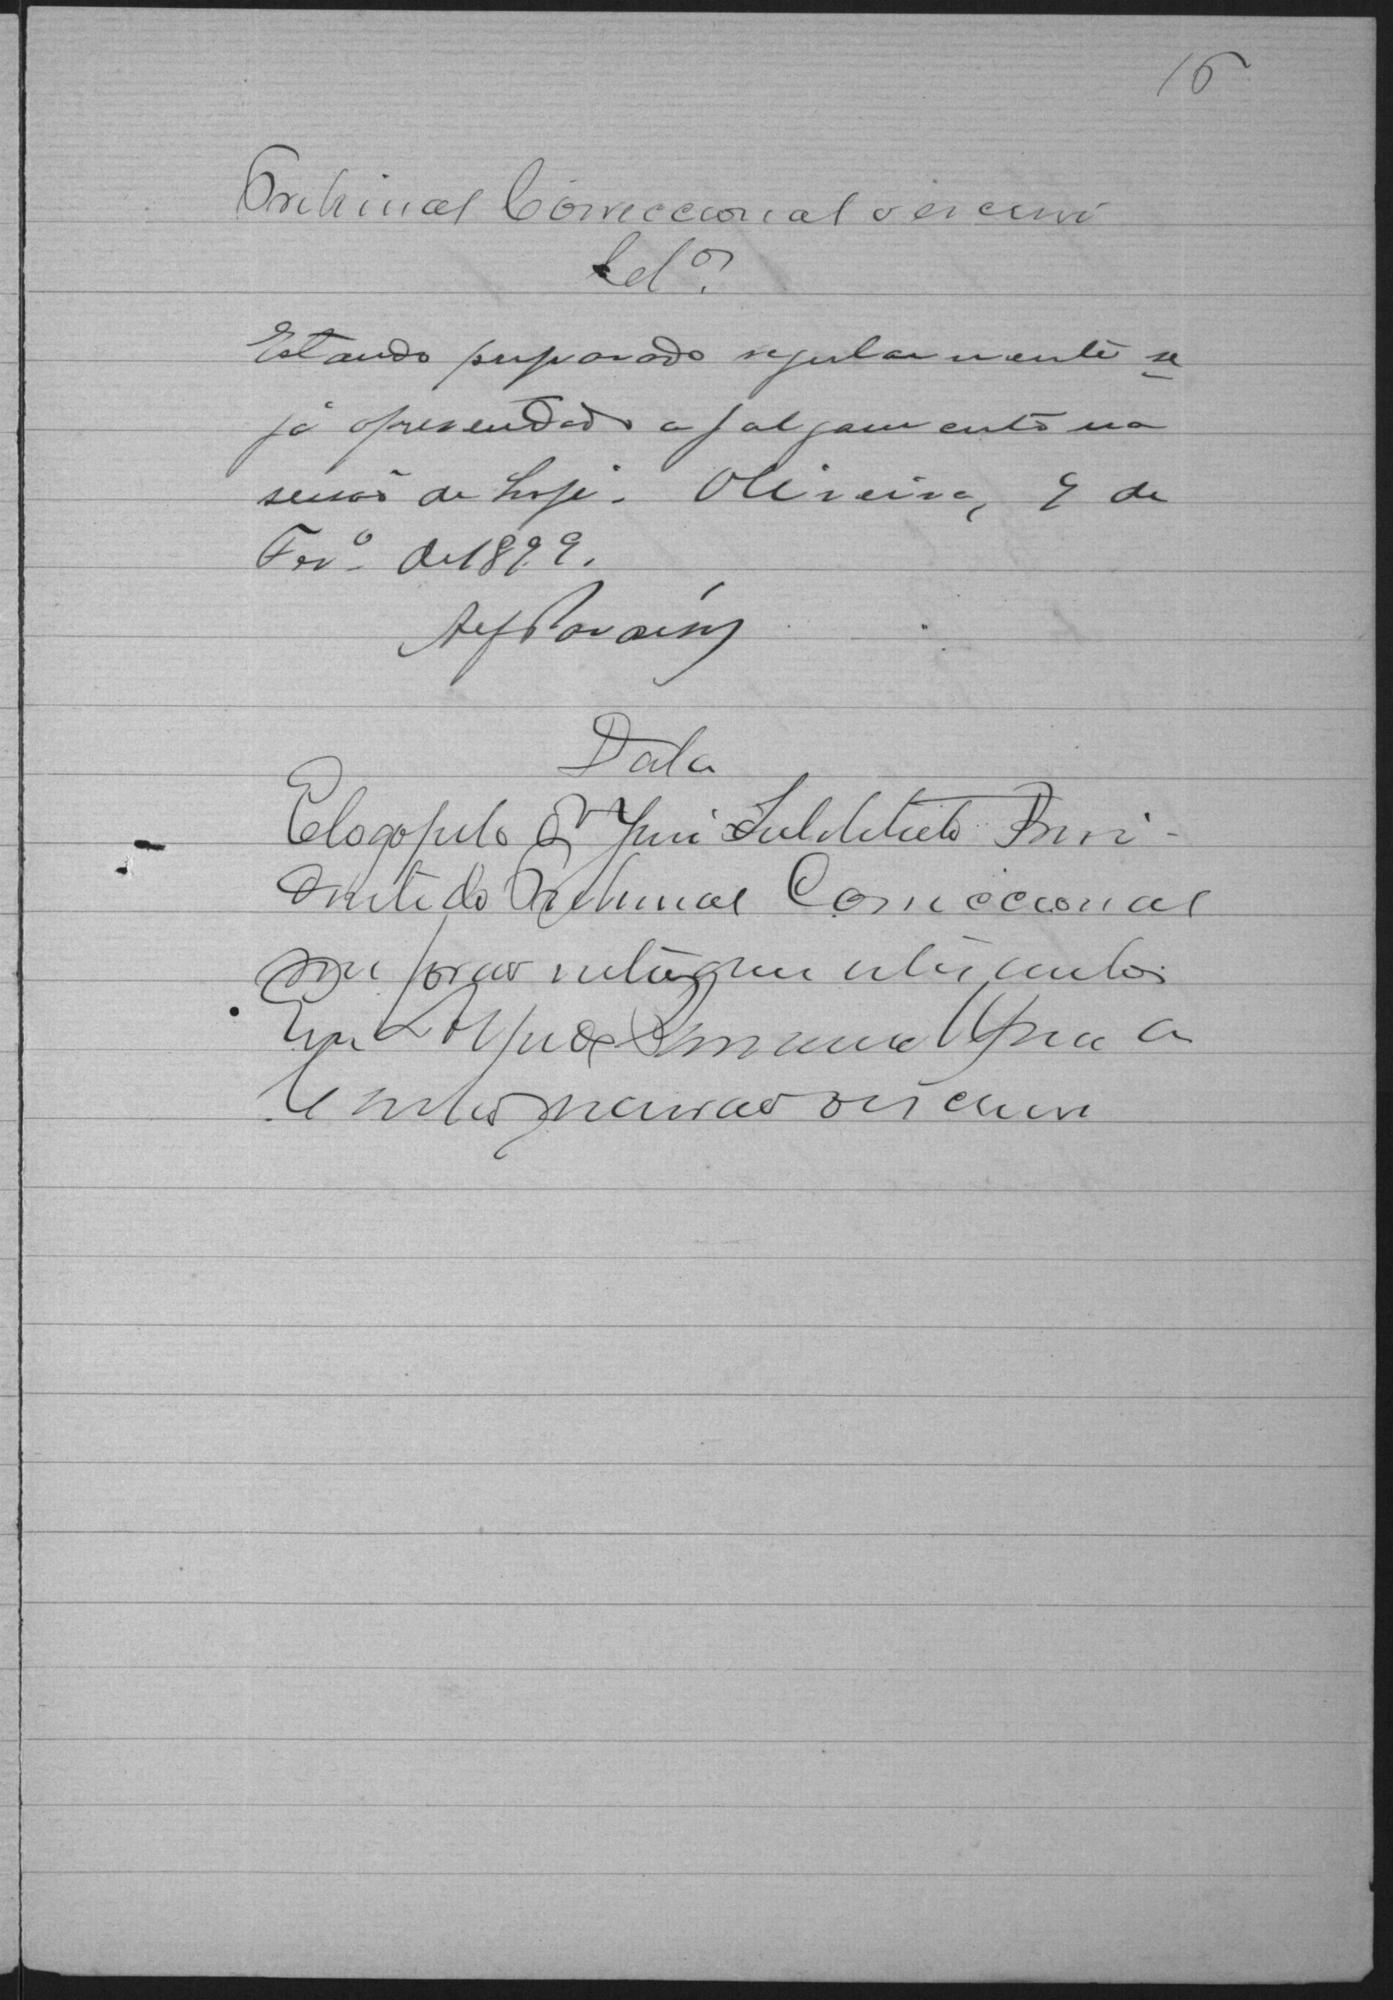 15
Tribunal Correccional o escrivi
Ld.º
Estando preparado regularmente se
ja apresentado a julgamento na
sessão de hoje. Oliveira, 9 de
Fev.º de 1899.
Data
E logo pelo Dr Juiz Substituto Presi-
dente do Tribunal Correccional
me forão entregues estes autos
Eu
escrivão o escrevi